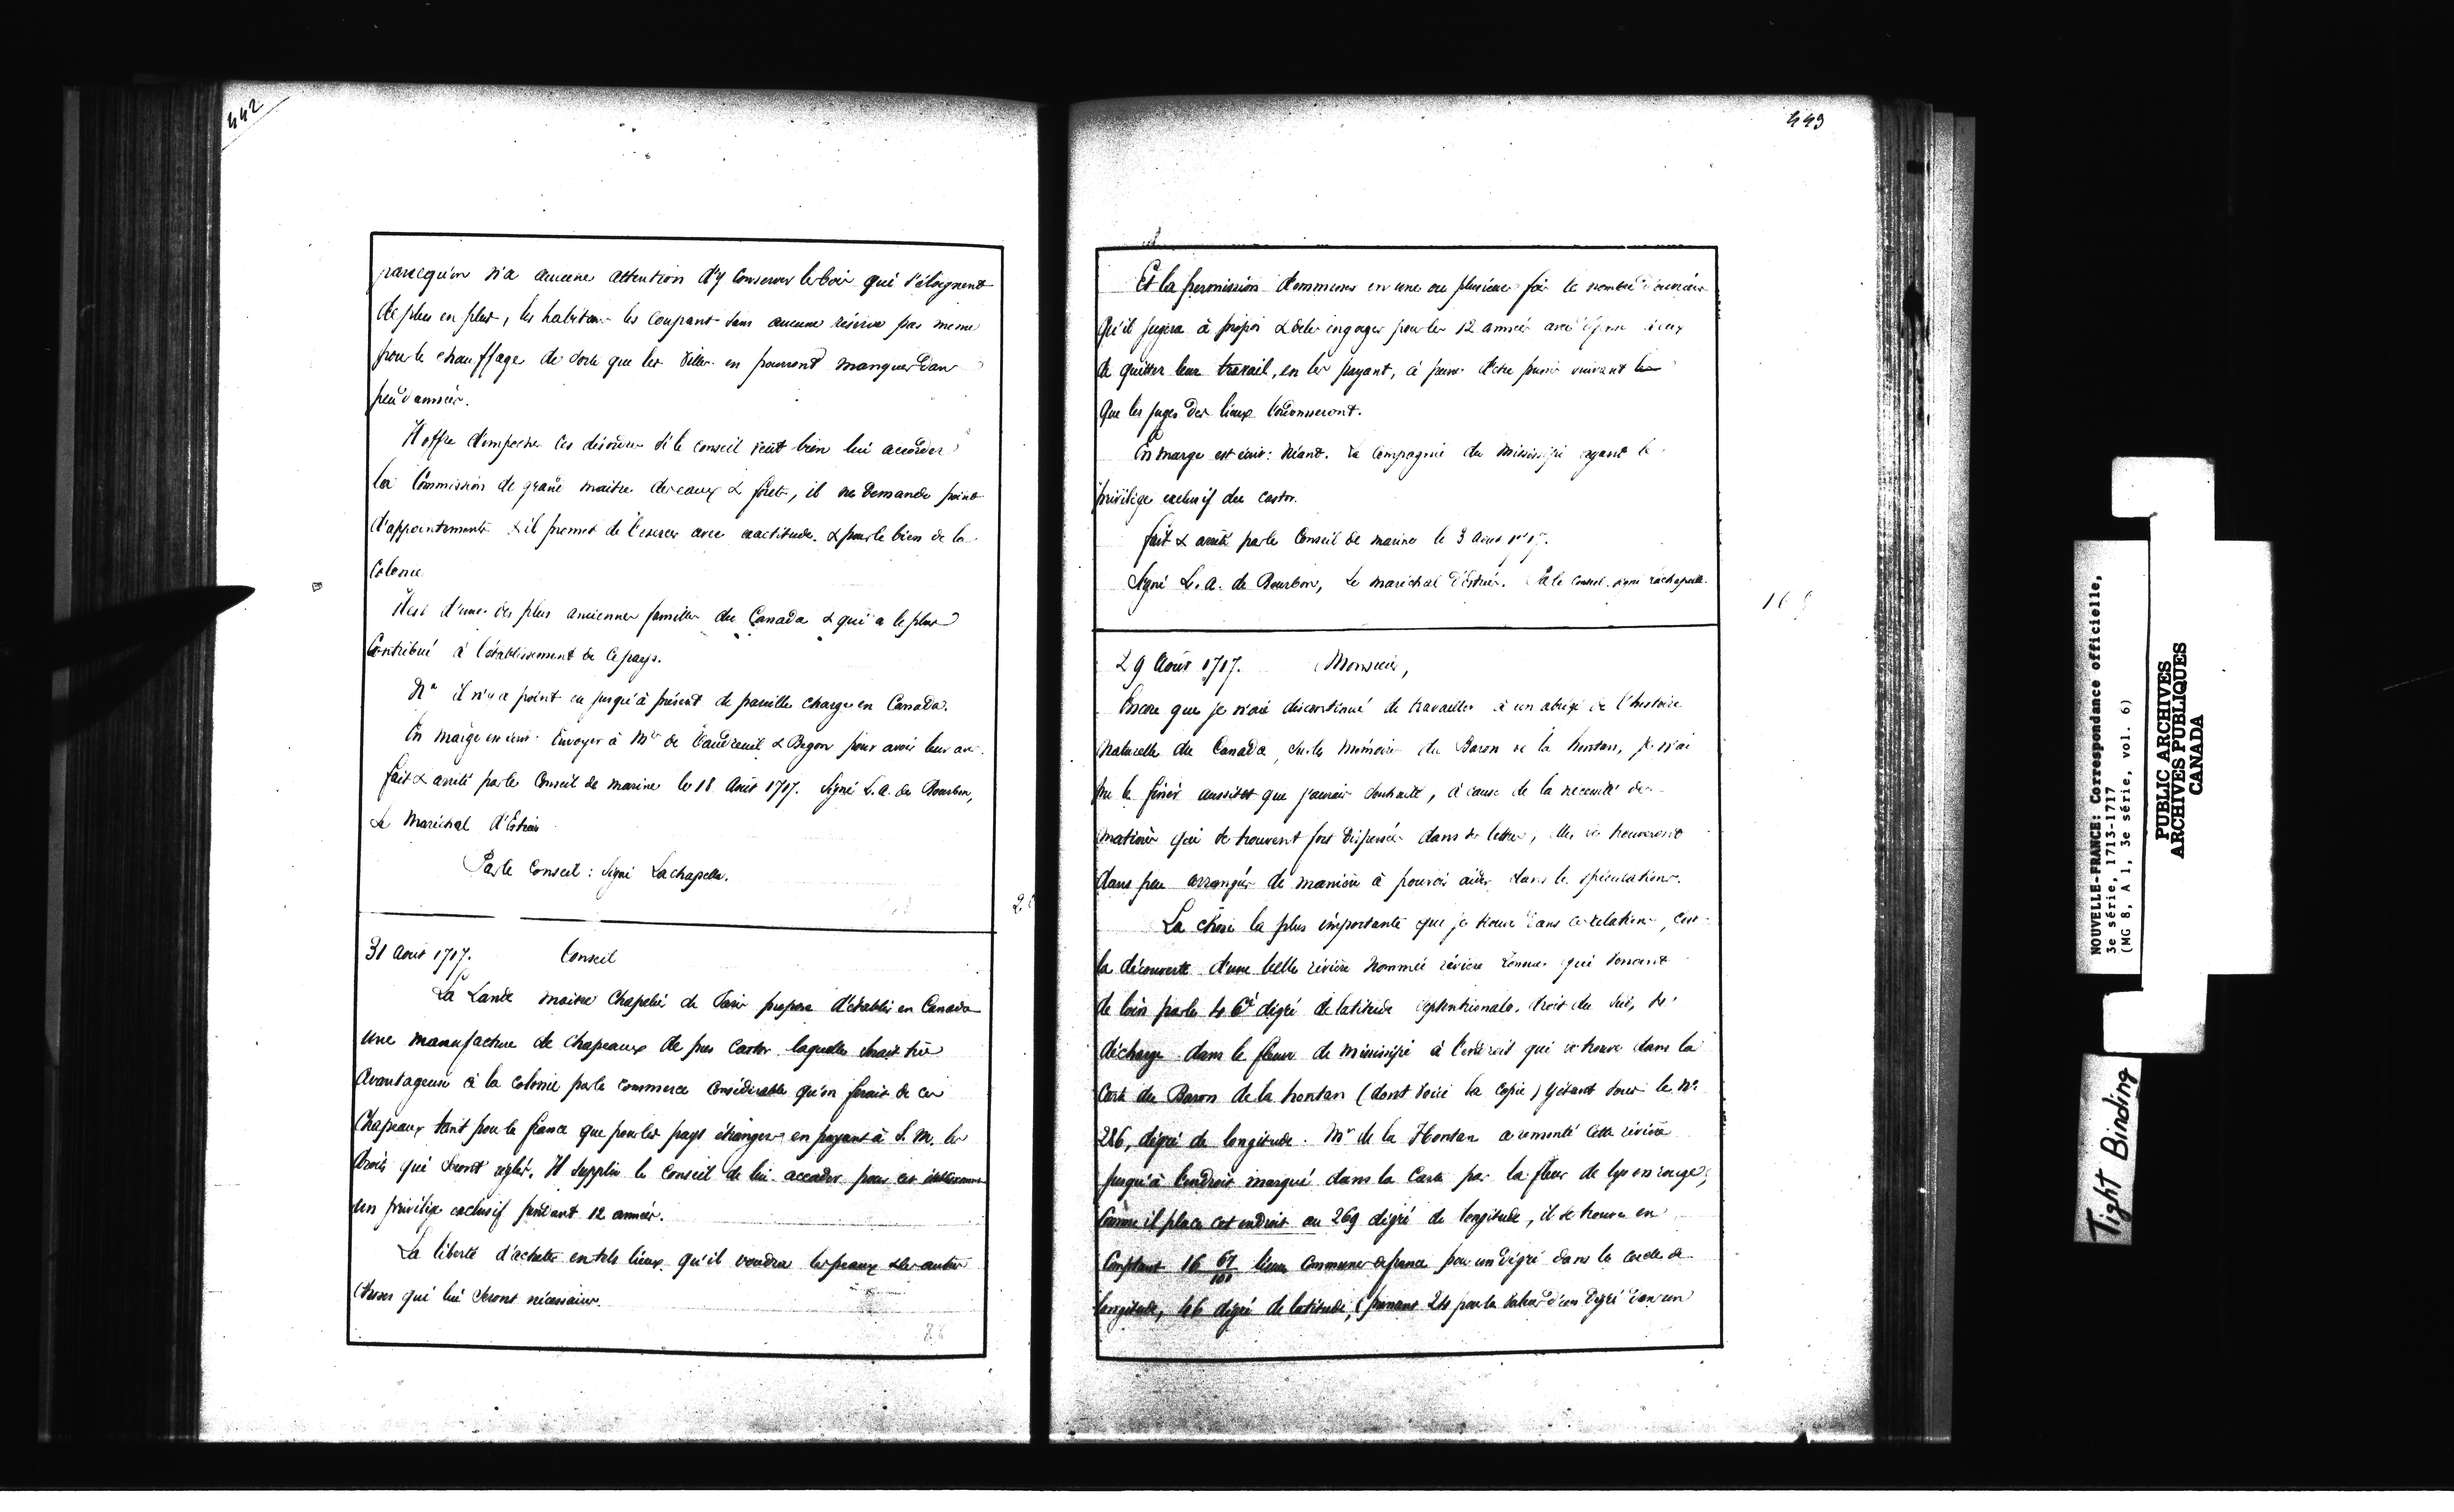 442
parcequ'on n'a aucune attention d'y conserver les bois qui s'éloignent
de plus en plus, les habitans les coupant sans aucune réserve pas meme
pour le chauffage de sorte que les villes en pourront manquer dans
peu d'années.
Il offre d'empecher ces désordres si le conseil veut bien lui accorder
la Commission de grand maitre des eaux & forets, il ne demande point
d'appointements & il promet de l'exercer avec exactitude & pour le bien de la
Colonie
Il est d'une des plus anciennes familles du Canada & qui a le plus
Contribué à l'établissement de ce pays.
Na il n'y a point eu jusqu'à présent de pareille charge en Canada.
En marge est écrit: Envoyer à Mrs de Vaudreuil & Begon pour avoir leur avis.
fait & arrêté par le Conseil de marine le 18 Août 1717. Signé L. A. de Bourbon,
Le Maréchal d'Estrées
Par le Conseil: signé Lachapelle.
31 Août 1717. Conseil
La Lande maitre Chapelier de Paris propose d'établir en Canada
une manufacture de chapeaux de pur Castor laquelle serait très
avantageuse à la colonie par le commerce considérable qu'on ferait de ces
Chapeaux tant pour la france que pour les pays étrangers en payant à S. M. les
droits qui seront réglés. Il supplie le Conseil de lui accorder pour cet établissement
un privilège exclusif pendant 12 années.
La liberté d'acheter en tels lieux qu'il voudra les peaux & les autres
choses qui lui seront nécessaires.
443
Et la permission d'emmener en une ou plusieurs fois le nombre d'ouvriers
qu'il jugera à propos & de les engager pour les 12 années avec défense à eux
de quitter leur travail, en les payant, à peine d'etre punis suivant
que les juges des lieux l'ordonneront.
En marge est écrit: Néant. La Compagnie du Mississipi ayant le
privilège exclusif du castor.
fait & arrêté par le Conseil de marine le 3 Août 1717.
Signé L. A. de Bourbon, Le maréchal d'Estrées. Par le Conseil signé Lachapelle.
29 Août 1717. Monsieur,
Encore que je n'aie discontinué de travailler à un abrégé de l'histoire
naturelle du Canada, sur les mémoires du Baron de la hontan, je n'ai
pu le finir aussitot que j'aurais souhaité, à cause de la necessité des
matières qui se trouvent fort dispersées dans ses lettres, elles se trouveront
dans peu arrangées de manière à pouvoir aider dans les spéculations.
La chose la plus importante que je trouve dans ces relations, c'est
la découverte d'une belle rivière nommée rivière longue qui venant
de loin par le 46e dégré de latitude septentrionale, droit du Sud, se
décharge dans le fleuve de Mississipi à l'endroit qui se trouve dans la
Carte du Baron de la hontan (dont voici la copie) gétant sous le No
286, dégré de longitude. Mr de la Hontan a remonté cette rivière
jusqu'à l'endroit marqué dans la Carte par la fleur de lys en rouge;
Comme il place cet endroit au 269 dégré de longitude, il se trouve en
Comptant 16 67/100 lieues communes de france pour un dégré dans le cercle de
longitude, 46 dégré de latitude, (prenant 24 pour la valeur d'un dégré dans un
NOUVELLE-FRANCE: Correspondance officielle,
3e série, 1713-1717
(MG 8, A 1, 3e série, vol. 6)
PUBLIC ARCHIVES
ARCHIVES PUBLIQUES
CANADA
Tight Binding